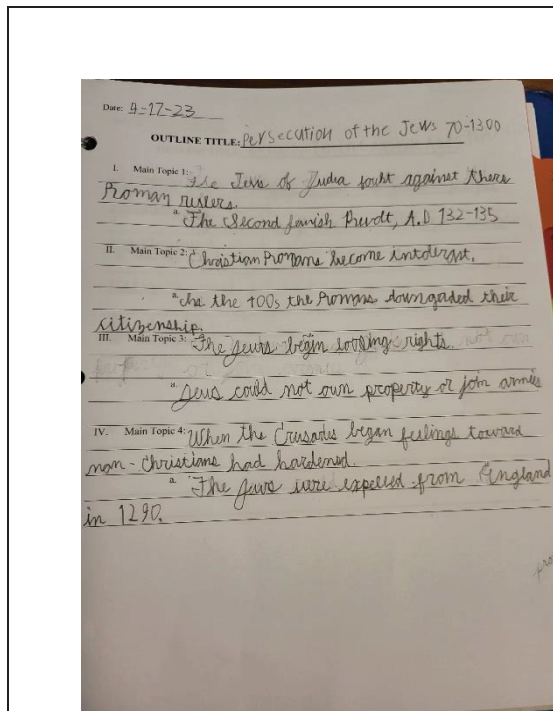 Date: 9-17-23
OUTLINE TITLE: Persecution of the Jews 70-1300
I. Main Topic 1: The Jews of Judia fouht against there
Roman rulers.
a. The Second Jewish Revolt, A.D 132-135
II. Main Topic 2: Christian Romans become intolerant.
a. In the 400s the Romans downgaded their
citizenship.
III. Main Topic 3: The Jews begin loosing rights.
a. Jews could not own property or join armies
IV. Main Topic 4: When the Crusades began feelings toward
non-Christians had hardened.
a. The Jews were expelled from England
in 1290.